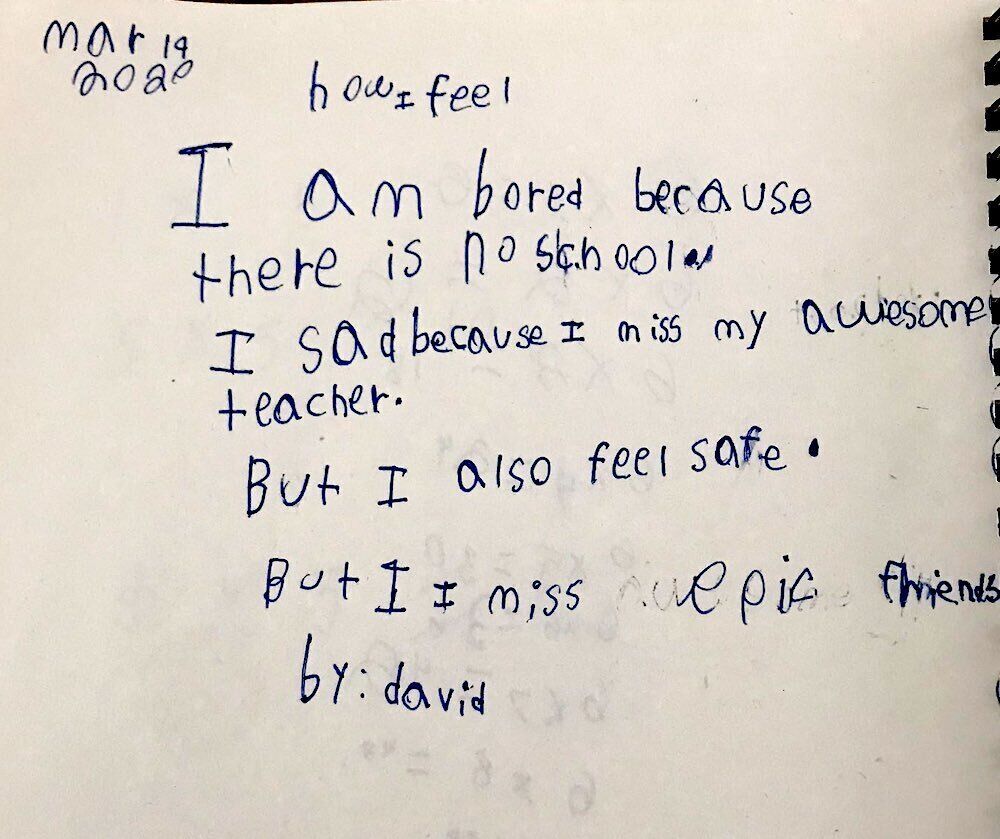 mar 19
2020
how I feel
I am bored because
there is no school.
I sad because I miss my awesome
teacher.
But I also feel safe.
But I I miss epic friends
by: david